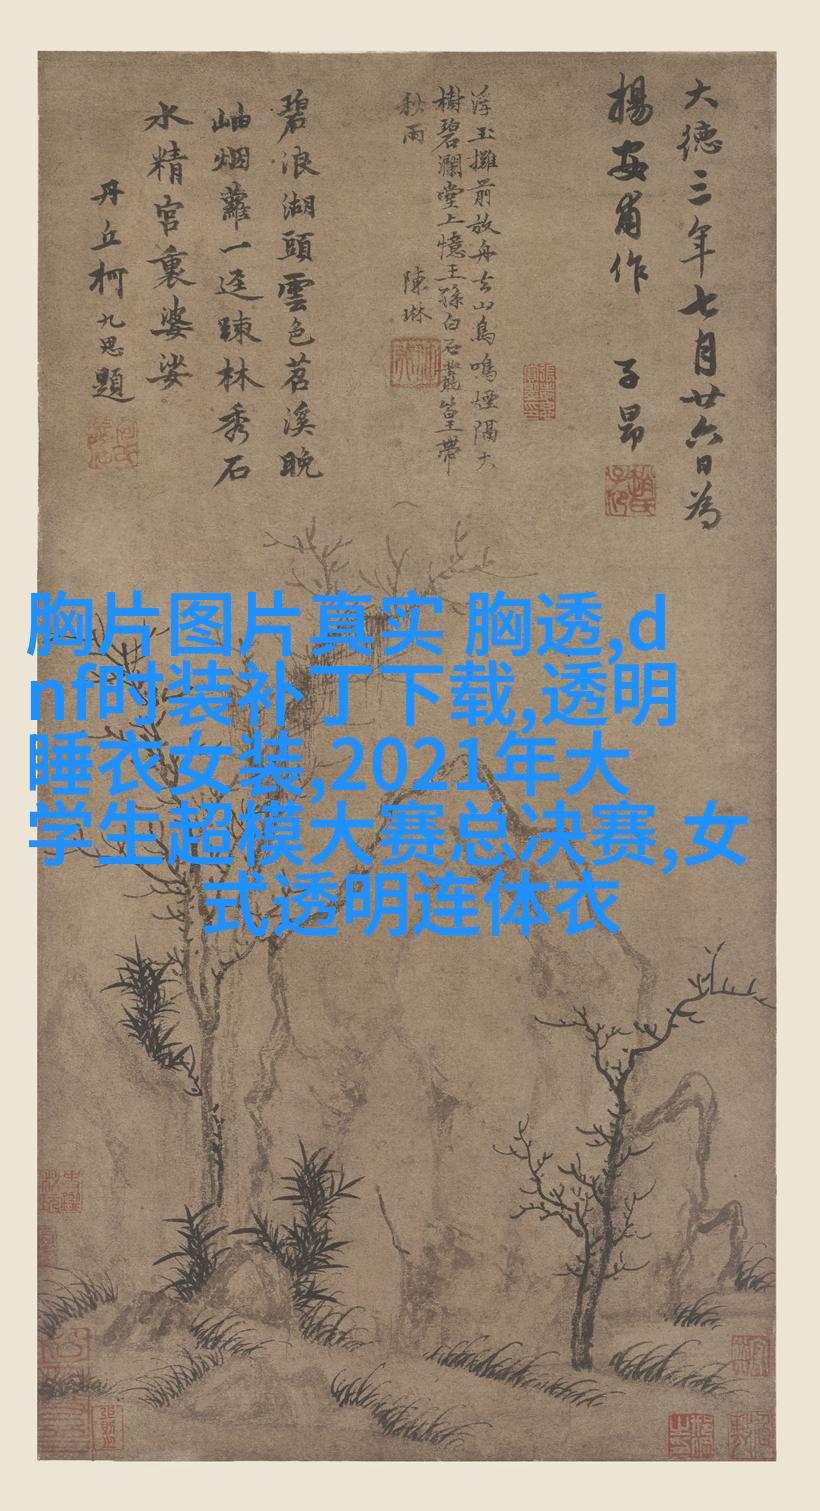 大德三年七月廿六日為
楊安甫作 子昂
浮玉攤前放舟去山鳥鳴煙隔大
樹碧瀾堂上憶王孫白石叢篁帶
秋雨 陳琳
碧浪湖頭雲色苕溪晚
岫烟蘿一逕踈林秀石
水精宮裏婆娑
丹丘柯九思題
胸片图片真实 胸透,d
nf时装补丁下载,透明
睡衣女装,2021年大
学生超模大赛总决赛,女
式透明连体衣